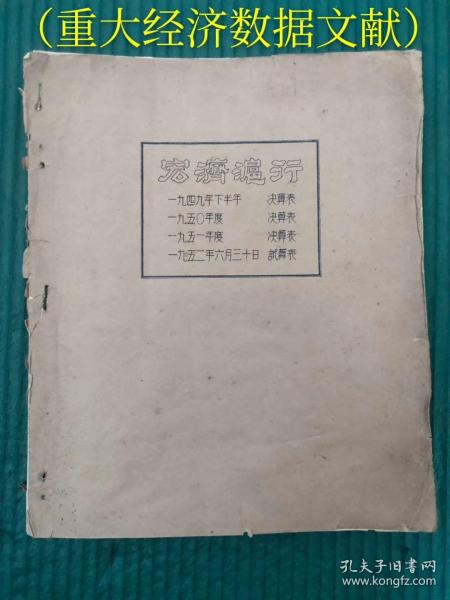 （重大经济数据文献）
宏濟滬行
一九四九年下半年 决算表
一九五〇年度 决算表
一九五一年度 决算表
一九五二年六月三十日 試算表
孔夫子旧书网
www.kongfz.com